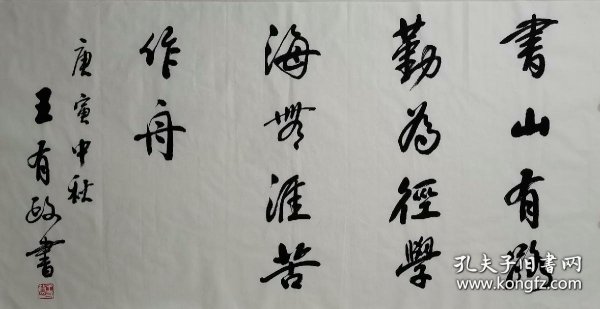 書山有路
勤為徑學
海無涯苦
作舟
庚寅中秋
王有政書
孔夫子旧书网
www.kongfz.com